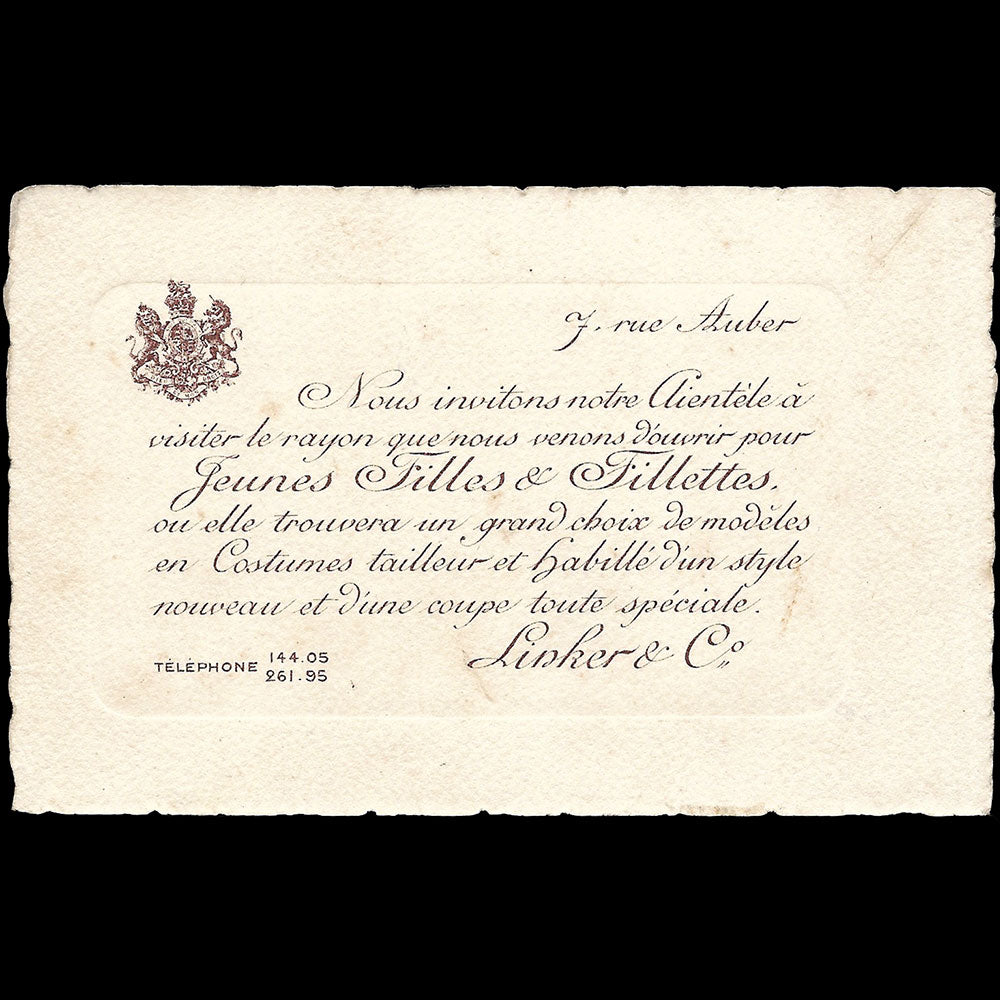 7, rue Auber
Nous invitons notre Clientèle à
visiter le rayon que nous venons d'ouvrir pour
Jeunes Filles & Fillettes,
ou elle trouvera un grand choix de modèles
en Costumes tailleur et habillé d'un style
nouveau et d'une coupe toute spéciale.
Linker & Cº
TÉLÉPHONE 144.05
261.95